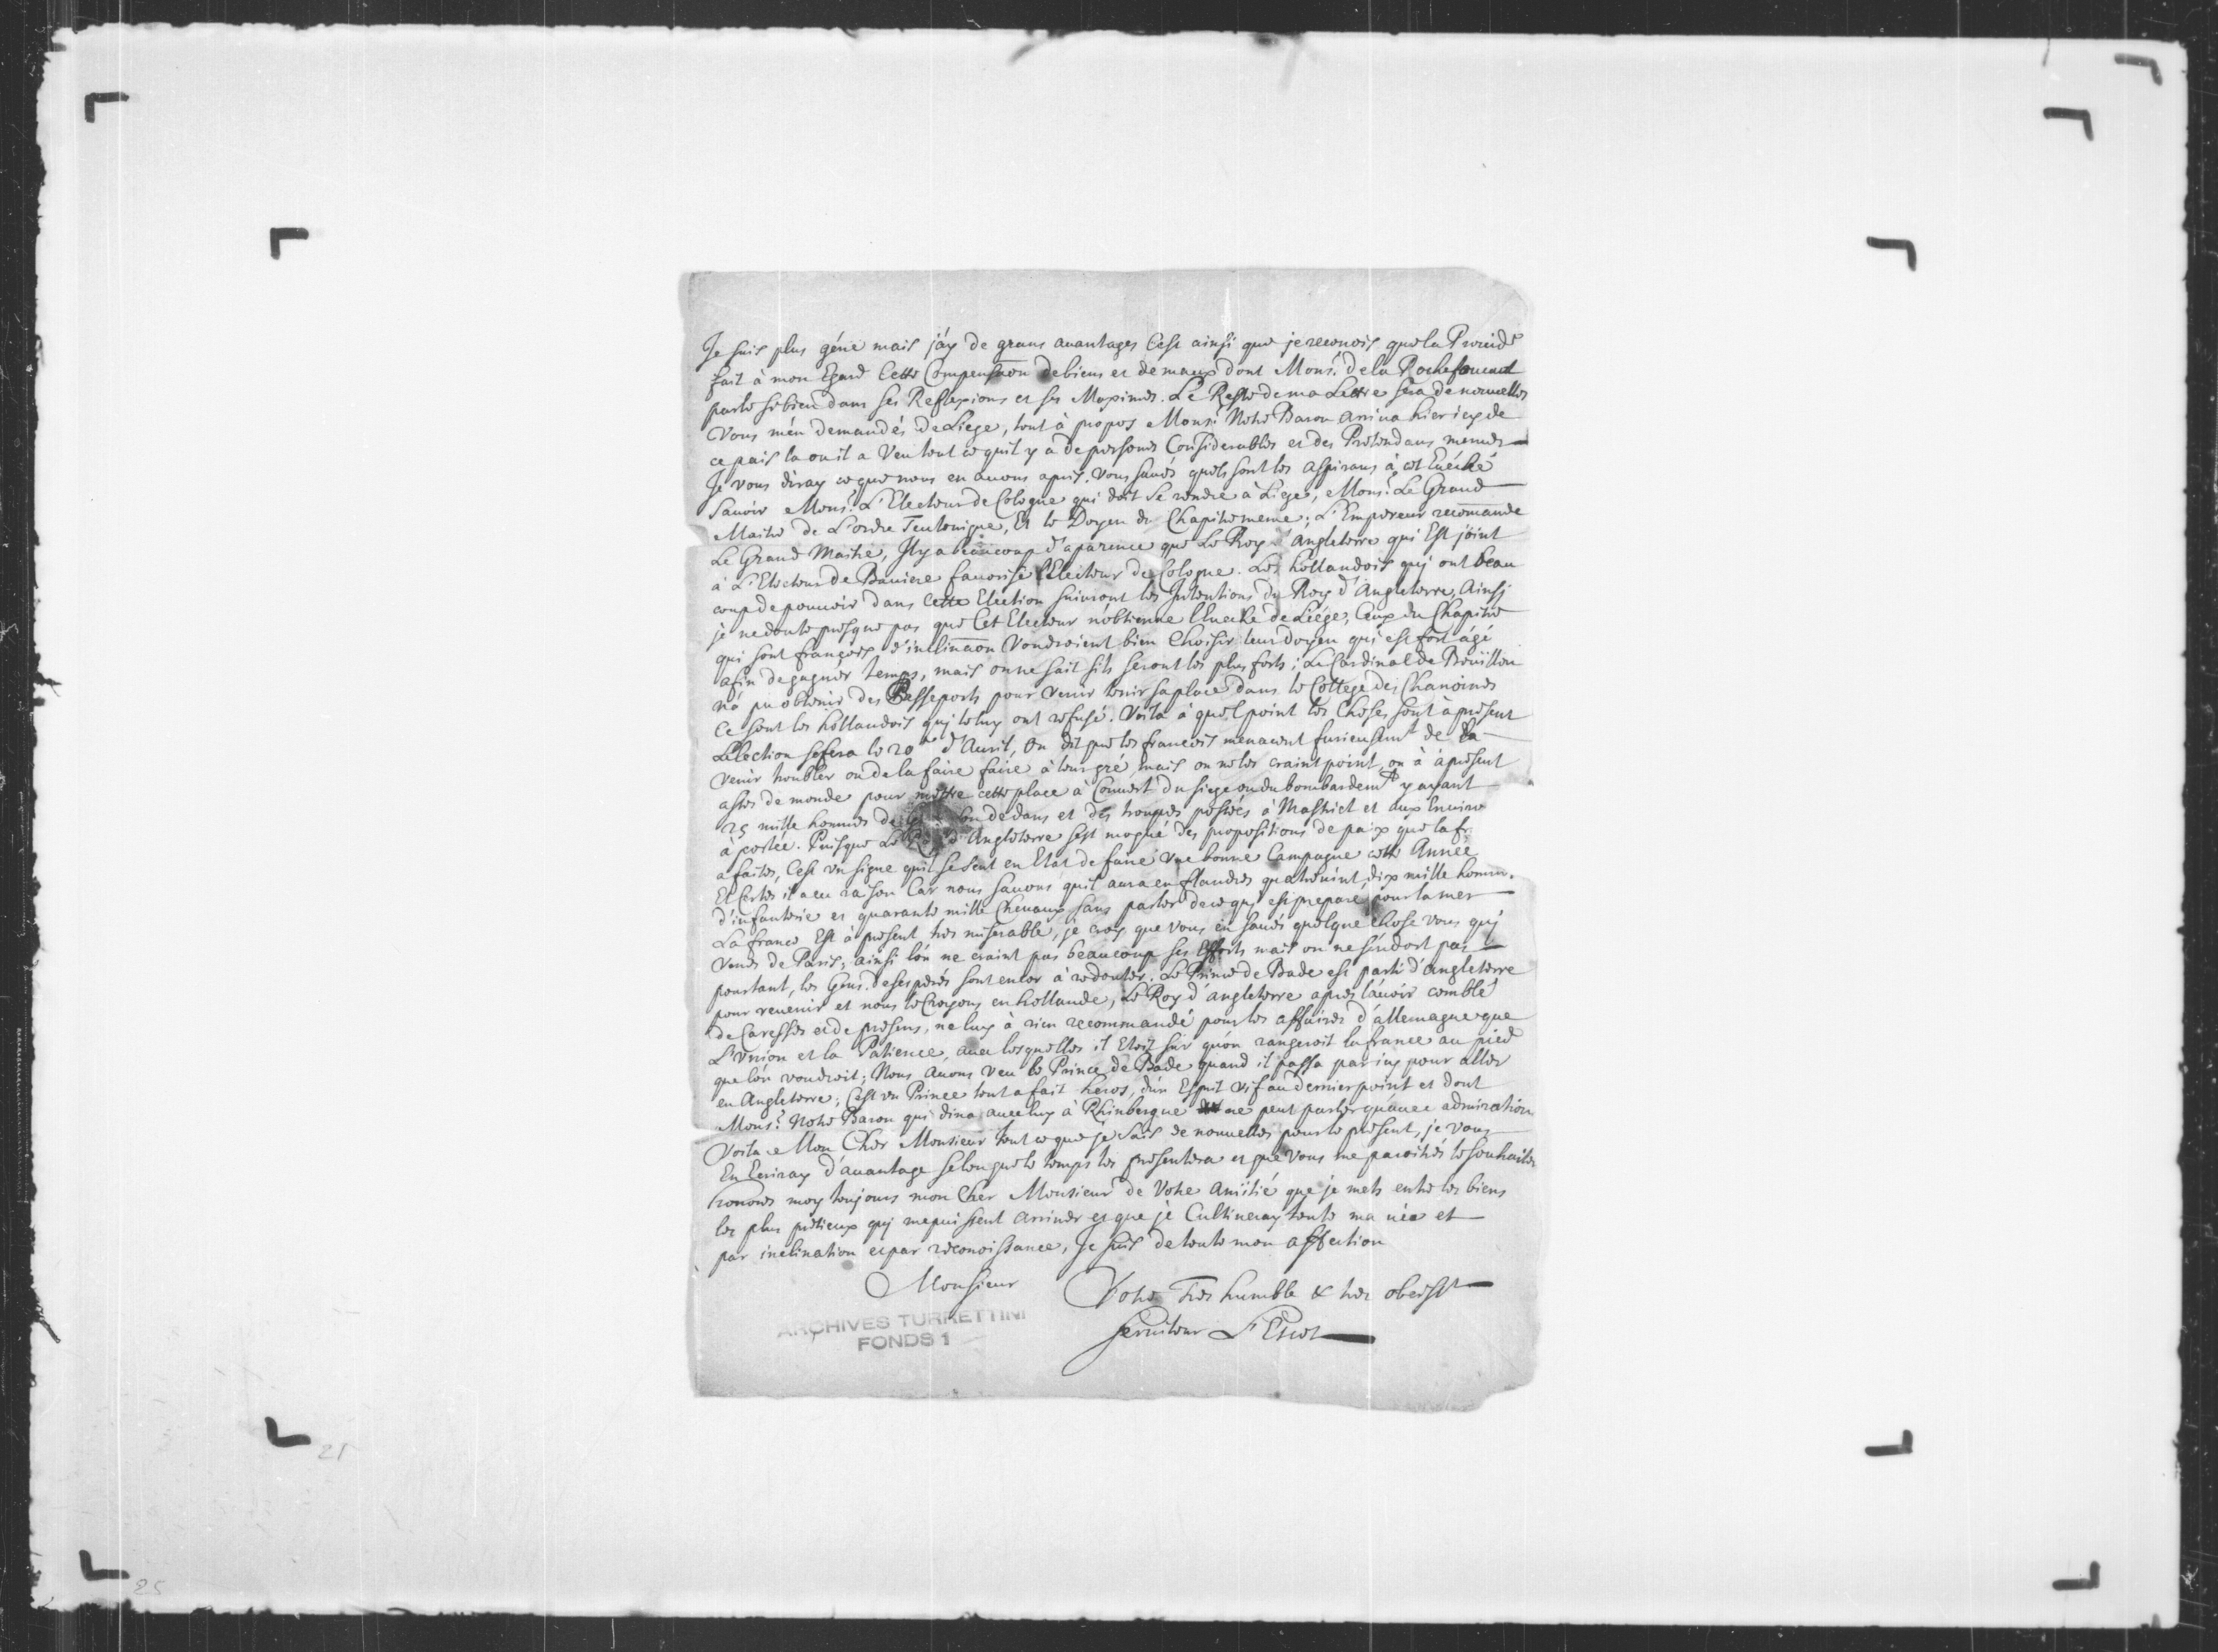 Je suis plus géné mais j'ay de grans auantages C'est ainsi que je reconois que la Prouidce
fait à mon Egard Cette Compensaõon de biens et de maux dont Monsr. de la Rochefoucaut
parle si bien dans ses Reflexions et ses Maximes. Le Reste de ma Lettre sera de nouuelles
Vous m'en demandés de Liege, tout à propos Monsr. Notre Baron arriua hier icy de
ce pais la ou il a Veu tout ce qu'il y a de personnes Considerables et des Pretendans memes
Je vous diray ce que nous en auons apris. Vous saués quels sont les aspirans à cet Euéché
sauoir Monsr. L'Electeur de Cologne qui doit se rendre à Liege, Monsr. Le Grand
Maitre de L'ordre Teutonique, Et le Doyen du Chapitre meme; L'Empereur recomande
Le Grand Maitre, Il y a beaucoup d'aparence que Le Roy d'Angleterre qui Est joint
à L'Electeur de Bauiere fauorise l'Electeur de Cologne. Les hollandois quj ont beau
coup de pouuoir dans Cette Election suiuront les Intentions du Roy d'Angleterre, Ainsj
je ne doute presque pas que Cet Electeur n'obtienne l'Eueché de Liége; Ceux du Chapitre
qui sont françois d'inclinaõn Voudroient bien Choisir leur doyen qui est fort agé
afin de gagner temps, mais on ne sait s'ils seront les plus forts; Le Cardinal de Boüillon
n'a pu obtenir des Passeports pour venir tenir sa place dans le College des Chanoines
Ce sont les hollandois quj le luy ont refusé. Voila à quel point les Choses sont à present
L'election se fera le 20e d'Auril, On dit que les francois menacent furieusemt de la
venir troubler ou de la faire faire à leur gré mais on ne les craint point, on à à present
assés de monde pour mettre cette place à Couuert du siege ou du bombardemt y ayant
25 mille hommes de dedans et des troupes postées à Mastrict et aux Enuirõ
à portée. Puisque Le Roy d'Angleterre s'est moqué des propositions de paix que la fr
a faites, C'est vn signe qu'il se sent en Etat de faire vne bonne Campagne cette Année
Et Certes il a eu raison Car nous sauons qu'il aura en flandres quatreuint dix mille homm.
d'infanterie et quarante mille Cheuaux sans parler de ce quj est preparé pour la mer
La france Est à present tres miserable, je croy que vous en saués quelque chose vous quj
venés de Paris, ainsi l'on ne craint pas beaucoup ses Efforts mais on ne s'endort pas
pourtant, les Gens desesperés sont encor à redouter. Le Prince de Bade est parti d'angleterre
pour reuenir et nous le Croyons en hollande, Le Roy d'angleterre apres l'auoir comblé
de Caresses et de presens, ne luy à rien recommandé pour les affaires d'allemagne que
L'vnion et la Patience, auec lesquelles il Etoit sur qu'on rangeroit la france au pied
que l'on voudroit; Nous Auons veu le Prince de Bade quand il passa par icy pour aller
en Angleterre; C'est vn Prince tout a fait heros, d'un Esprit vif au dernier point et dont
Monsr. Notre Baron qui dina auec luy à Rhinbergue ne peut parler qu'auec admiration
Voila Mon Cher Monsieur tout ce que je sais de nouuelles pour le present, je vous
En Ecriray d'auantage selon que le temps les presentera et que vous me paroitrés le souhaiter
honorés moy toujours mon Cher Monsieur de Votre Amitié que je mets entre les biens
les plus pretieux quj me puissent arriuer et que je Cultiueray toute ma vie et
par inclination et par reconoissance, Je suis de toute mon affection
Monsieur Votre Tres humble & tres obeisst
seruiteur L'Escot
ARCHIVES TURRETTINI
FONDS 1
21
25